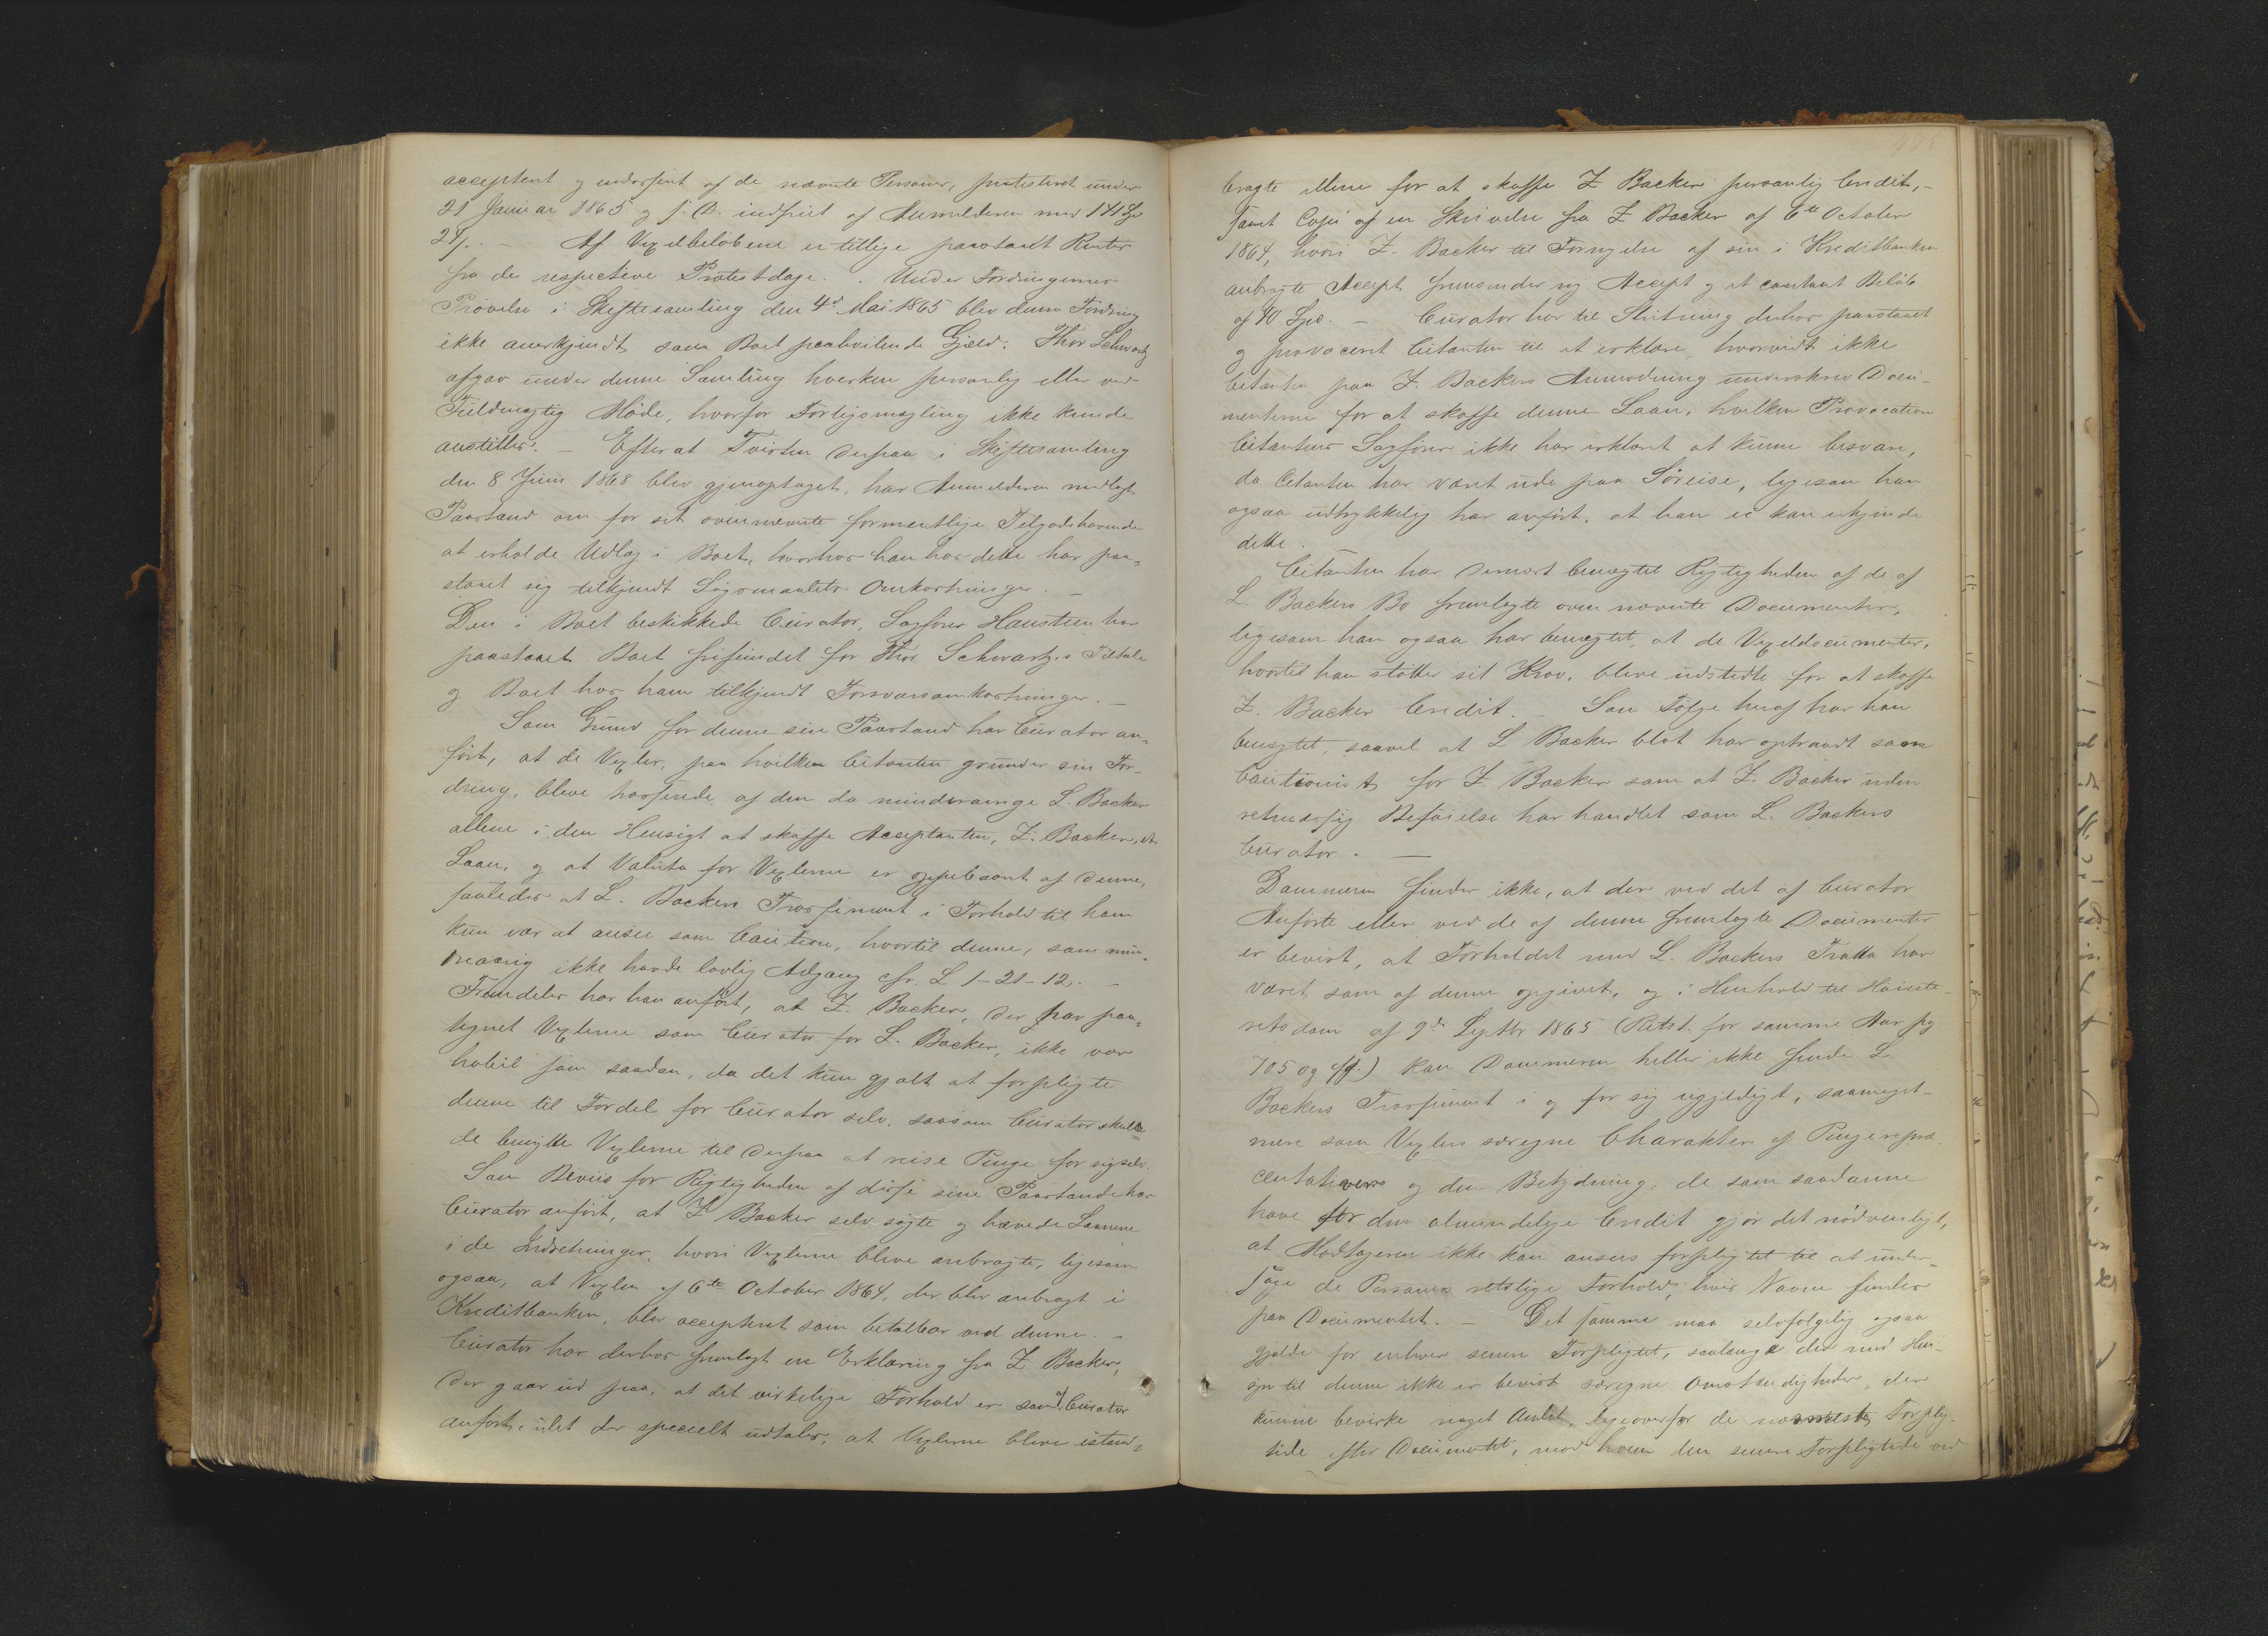 accepteret og endosseret af de nævnte Personer, protesteret under
21 Januar 1865 og s. D. indfriet af Anmelderen med 141 Spd
24 s. – Af Vexelbeløbene er tillige paastaaet Renter
fra de respective Protestdage. Under Fordringernes
Prøvelse i Skiftesamling den 4de Mai 1865 blev denne Fordring
ikke anerkjendt som Boet paahvilende Gjæld. Thor Schwartz
afgav under denne Samling hverken personlig eller ved
Fuldmægtig Møde, hvorfor Forligsmægling ikke kunde
anstilles. – Efterat Tvisten derpaa i Skiftesamling
den 8 Juni 1868 blev gjenoptaget, har Anmelderen nedlagt
Paastand om for sit ovennævnte formentlige Tilgodehavende
at erholde Udlæg i Boet, hvorhos han hos dette har paa=
staaet sig tilkjendt Søgsmaalets Omkostninger. –
Den i Boet beskikkede Curator, Sagfører Hansteen har
paastaaet Boet frifundet for Thor Schwartz's Tiltale
og Boet hos ham tilkjendt Forsvarsomkostninger. –
Som Grund for denne sin Paastand har Curator an=
ført, at de Vexler, paa hvilken Citanten grunder sin For-
dring, bleve trasserede af den da mindreaarige L. Backer
allene i den Hensigt at skaffe Acceptanten, Z. Backer, et
Laan, og at Valuta for Vexlerne er oppebaaret af denne,
saaledes at L. Backers Trassement i Forhold til ham
kun var at ansee som Caution, hvortil denne, som min-
dreaarig ikke havde lovlig Adgang cfr. L 1–21–12. –
Fremdeles har han anført, at Z. Backer, der har paa=
tegnet Vexlerne som Curator for L. Backer, ikke var
habil som saadan, da det kun gjalt at forpligte
denne til Fordel for Curator selv, saasom Curator skulde
de benytte Vexlerne til derpaa at reise Penge for sig selv.
Som Beviis for Rigtigheden af disse sine Paastande har
Curator anført, at Z Backer selv søgte og hævede Laanene
i de Indretninger, hvori Vexlerne bleve anbragte, ligesom
ogsaa, at Vexlen af 6te October 1864, der blev anbragt i
Kreditbanken, blev accepteret som betalbar ved denne. –
Curator har derhos fremlagt en Erklæring fra Z Backer,
der gaar ud paa, at det virkelige Forhold er som af Curator
anført, idet der specielt udtales, at Vexlerne bleve istand=
475
bragte allene for at skaffe Z Backer personlig Credit, –
samt Copi af en Skrivelse fra Z Backer af 6te October
1864, hvori Z. Backer til Fornyelse af sin i Kreditbanken
anbragte Accept fremsender ny Accept og et contant Beløb
af 40 Spd. – Curator har til Slutning derhos paastaaet
og provoceret Citanten til at erklære, hvorvidt ikke
Citanten paa Z. Backers Anmodning underskrev Docu-
menterne for at skaffe denne Laan, hvilken Provocation
Citantens Sagfører ikke har erklæret at kunne besvare,
da Citanten har været ude paa Søreise, ligesom han
ogsaa udtrykkelig har anført, at han ei kan erkjende
dette.
Citanten har dernæst benegtet Rigtigheden af de af
L. Backers Bo fremlagte ovennævnte Documenter,
ligesom han ogsaa har benegtet, at de Vexeldocumenter,
hvortil han støtter sit Krav, bleve udstedte for at skaffe
Z. Backer Credit. – Som Følge heraf har han
benegtet, saavel at L Backer blot har optraadt som
Cautionist for Z. Backer som at Z. Backer uden
retmæssig Beføielse har handlet som L. Backers
Curator. –
Dommeren finder ikke, at der ved det af Curator
Anførte eller ved de af denne fremlagte Documenter
er bevist, at Forholdet med L. Backers Tratta har
været som af denne opgivet, og i Henhold til Høieste-
retsdom af 9de Septbr 1865 (Retst. for samme Aar pg
705 og ff.) kan Dommeren heller ikke finde L
Backers Trassement i og for sig ugyldigt, saameget
mere som Vexlers særegne Charakter af Pengerepræ-
centativer og den Betydning, de som saadanne
have for den almindelige Credit gjør det nødvendigt,
at Modtageren ikke kan ansees forpligtet til at under-
søge de Personers retslige Forhold, hvis Navne findes
paa Documentet. – Det samme maa selvfølgelig ogsaa
gjælde for enhver senere Forpligtet, saalænge der med Hen-
syn til denne ikke er bevist særegne Omstændigheder, der
kunne bevirke noget Andet, ligeoverfor de nærmeste Forplig-
tede efter Documentet, mod hvem den senere Forpligtede ved